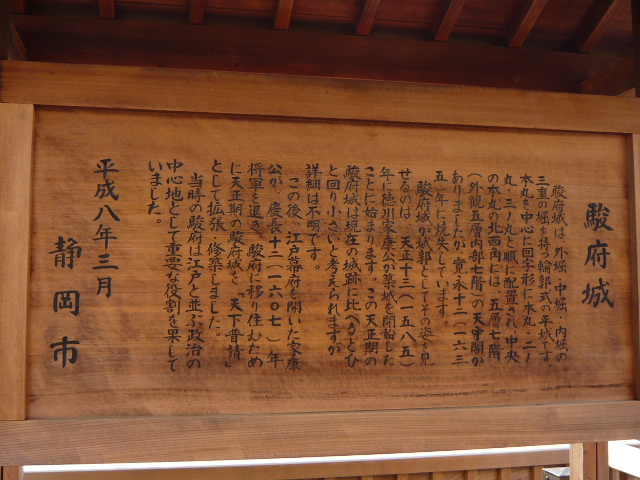 駿府城
駿府城は、外堀、中堀、内堀の
三重の堀を持つ輪郭式の平城です。
本丸を中心に回字形に本丸・二ノ
丸・三ノ丸と順に配置され、中央
の本丸の北西角には、五層七階
(外観五層内部七階)の天守閣が
ありましたが、寛永十二(一六三
五)年に焼失しています。
駿府城が城郭としてその姿を見
せるのは、天正十三(一五八五)
年に徳川家康公が築城を開始した
ことに始まります。この天正期の
駿府城は現在の城跡に比べるとひ
と回り小さいと考えられますが
詳細は不明です。
この後、江戸幕府を開いた家康
公が、慶長十二(一六0七)年
将軍を退き、駿府に移り住むため
に天正期の駿府城を「天下普請」
として拡張、修築しました。
当時の駿府は江戸と並ぶ政治の
中心地として重要な役割を果して
いました。
平成八年三月
静岡市